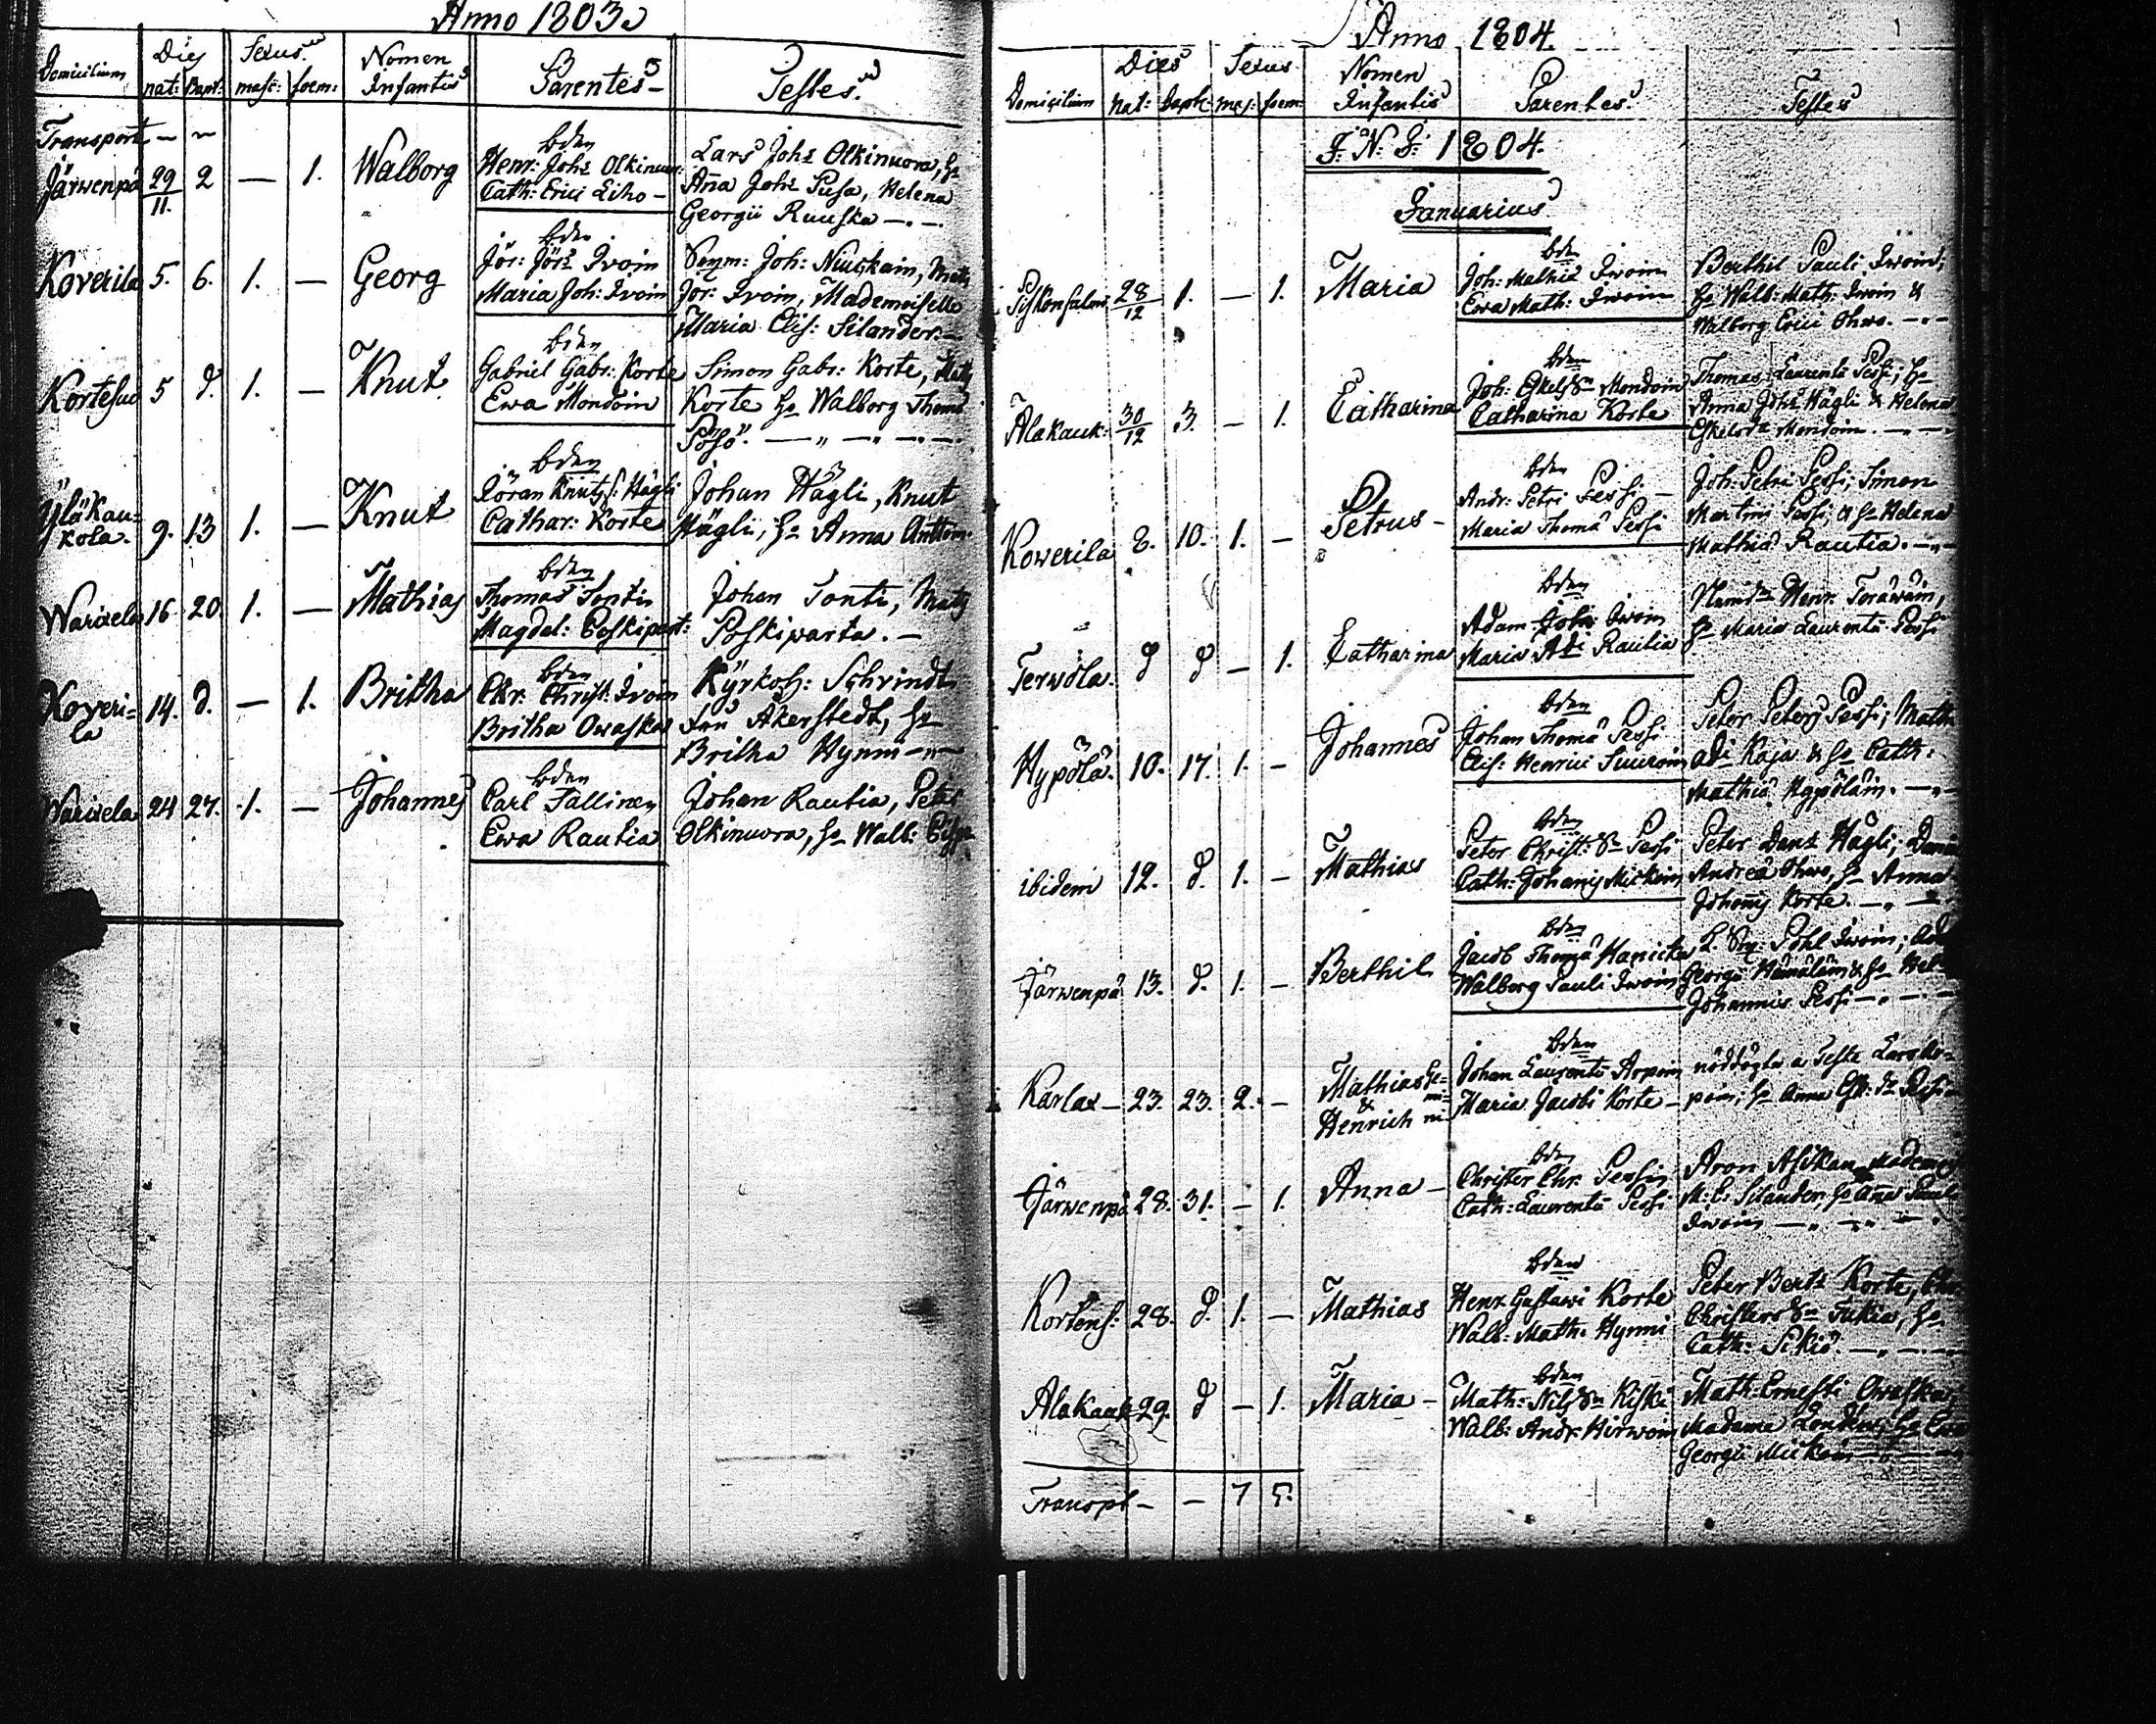 Anno 1803
Domicilium Dies Sexus Nomen Infantis Parentes Testes
nat: Bapt: masc: foem:
Transport — ~
Järwenpä 29/11. 2 — 1. Walborg
bden
Henr: Johs Olkinuor:
Cath: Erici Liho —
Lars Johs Olkinuora, hu
Anna Johs Pusa, Helena
Georgii Ruuska —.—.
Koverila 5. 6. 1. — Georg
bden
Jör: Jörs Ivoin
Maria Joh: Ivoin
Joh: Niuskain, Mats
Jör: Ivoin, Mademoiselle
Maria Elis: Silander. —
Kortesuo 5 d. 1. — Knut
bden
Gabriel Gabr: Korte
Ewa Mondoin
Simon Gabr: Korte, Mats
Korte hu Walborg Thomæ
Pösö. —„—.—.—.
Yläkau=
kola. 9. 13 1. — Knut
bden
Jöran Knuts: Hägli
Cathar: Korte
Johan Hägli, Knut
Hägli, hu Anna Anttoin.
Warixela 16 20 1. — Mathias
bden
Thomas Tontti
Magdal: Poskipart:
Johan Tonti, Mats
Poskiparta. —
Koveri=
la 14. d. — 1. Britha
bden
Chr. Christ. Ivoin
Britha Owaska
Kyrkoh: Schrindt
Fru Åkerstedt, hu
Britha Hynni —„—
Warixela 24 27. 1. — Johannes
bden
Carl Tallinen
Ewa Rautia
Johan Rautia, Peter
Olkinuora, hu Walb:
Anno 1804.
Domicilium Dies Sexus Nomen Infantis Parentes Testes
Nat: Bapt: mas: foem:
J: N: J: 1804.
Januarius
Piskonsalmi 28/12 1. — 1. Maria
bden
Joh: Mathiæ Iwoin
Ewa Math: Iwoin
Berthil Pauli Iwoin;
hu Walb: Math: Iwoin &
Walborg Erici Ohwo. —.—
Alakauk: 30/12 3. — 1. Catharina
bden
Joh: Eskelsn Mondoin
Catharina Korte
Thomas Laurentii Pessi; hu
Anna Johs Hägli & Helena
Eskelsdr Mondoin. —.—
Kowerila 8. 10. 1. — Petrus —
bden
Andr: Petri Pessi —
Maria Thomæ Pessi
Joh: Petri Pessi; Simon
Martini Pessi, & hu Helena
Mathiæ Rautia. —„—
Terwola. d d — 1. Catharina
bden
Adam Iwoin
Maria Adi Rautia
Henr. Toräwäin,
hu Maria Laurentii Pessi
Hypölä. 10. 17. 1. — Johannes
bden
Johan Thomæ Pessi
Elis: Henrici Suuroin
Peter Peters Pessi; Math:
Adi Kaja & hu Cath:
Mathiæ Hypöläin. —„—
ibidem 12. d. 1. — Mathias
bden
Peter Christ: sn Pessi
Cath: Johanis Mickoin
Peter Dans Hägli; Daniel
Andreæ Ohwo, hu Anna
Johanis Korte. —„—
Järwenpä 13. d. 1. — Berthil
bden
Jacob Thomæ
Walborg Pauli Iwoin
Pohl Iwoin;
Georgii Hämäläin & hu Hel:
Johannis Pessi —„—.—
Karlax — 23. 23. 2. — Mathias & Henrich Ge=mi=ni
bden
Johan Laurentii Arpoin
Maria Jacobi Korte —
nöddögte a Teste Lars Ar=
poin; hu Anna Pessi —
Järwenpä 28. 31. — 1. Anna —
bden
Christer Chr. Pessin
Cath: Laurentii Pessi
Aron Asikan, Mademois
M: E: Silander, hu Anna Pauli
Iwoin —„—„—
Kortens: 28. d. 1. — Mathias
bden
Henr. Gustawi Korte
Walb: Math: Hynni
Peter Berts Korte, Chr:
Christers sn Tukia, hu
Cath: —„—.—
Alakauk: 29. d — 1. Maria —
bden
Math: Nils sn Kiski
Walb: Andr: Hirwoin
Math: Ernesti Owaska,
Madame hu Ewa
Georgii Mickoin —
Transpt — — 7 5.